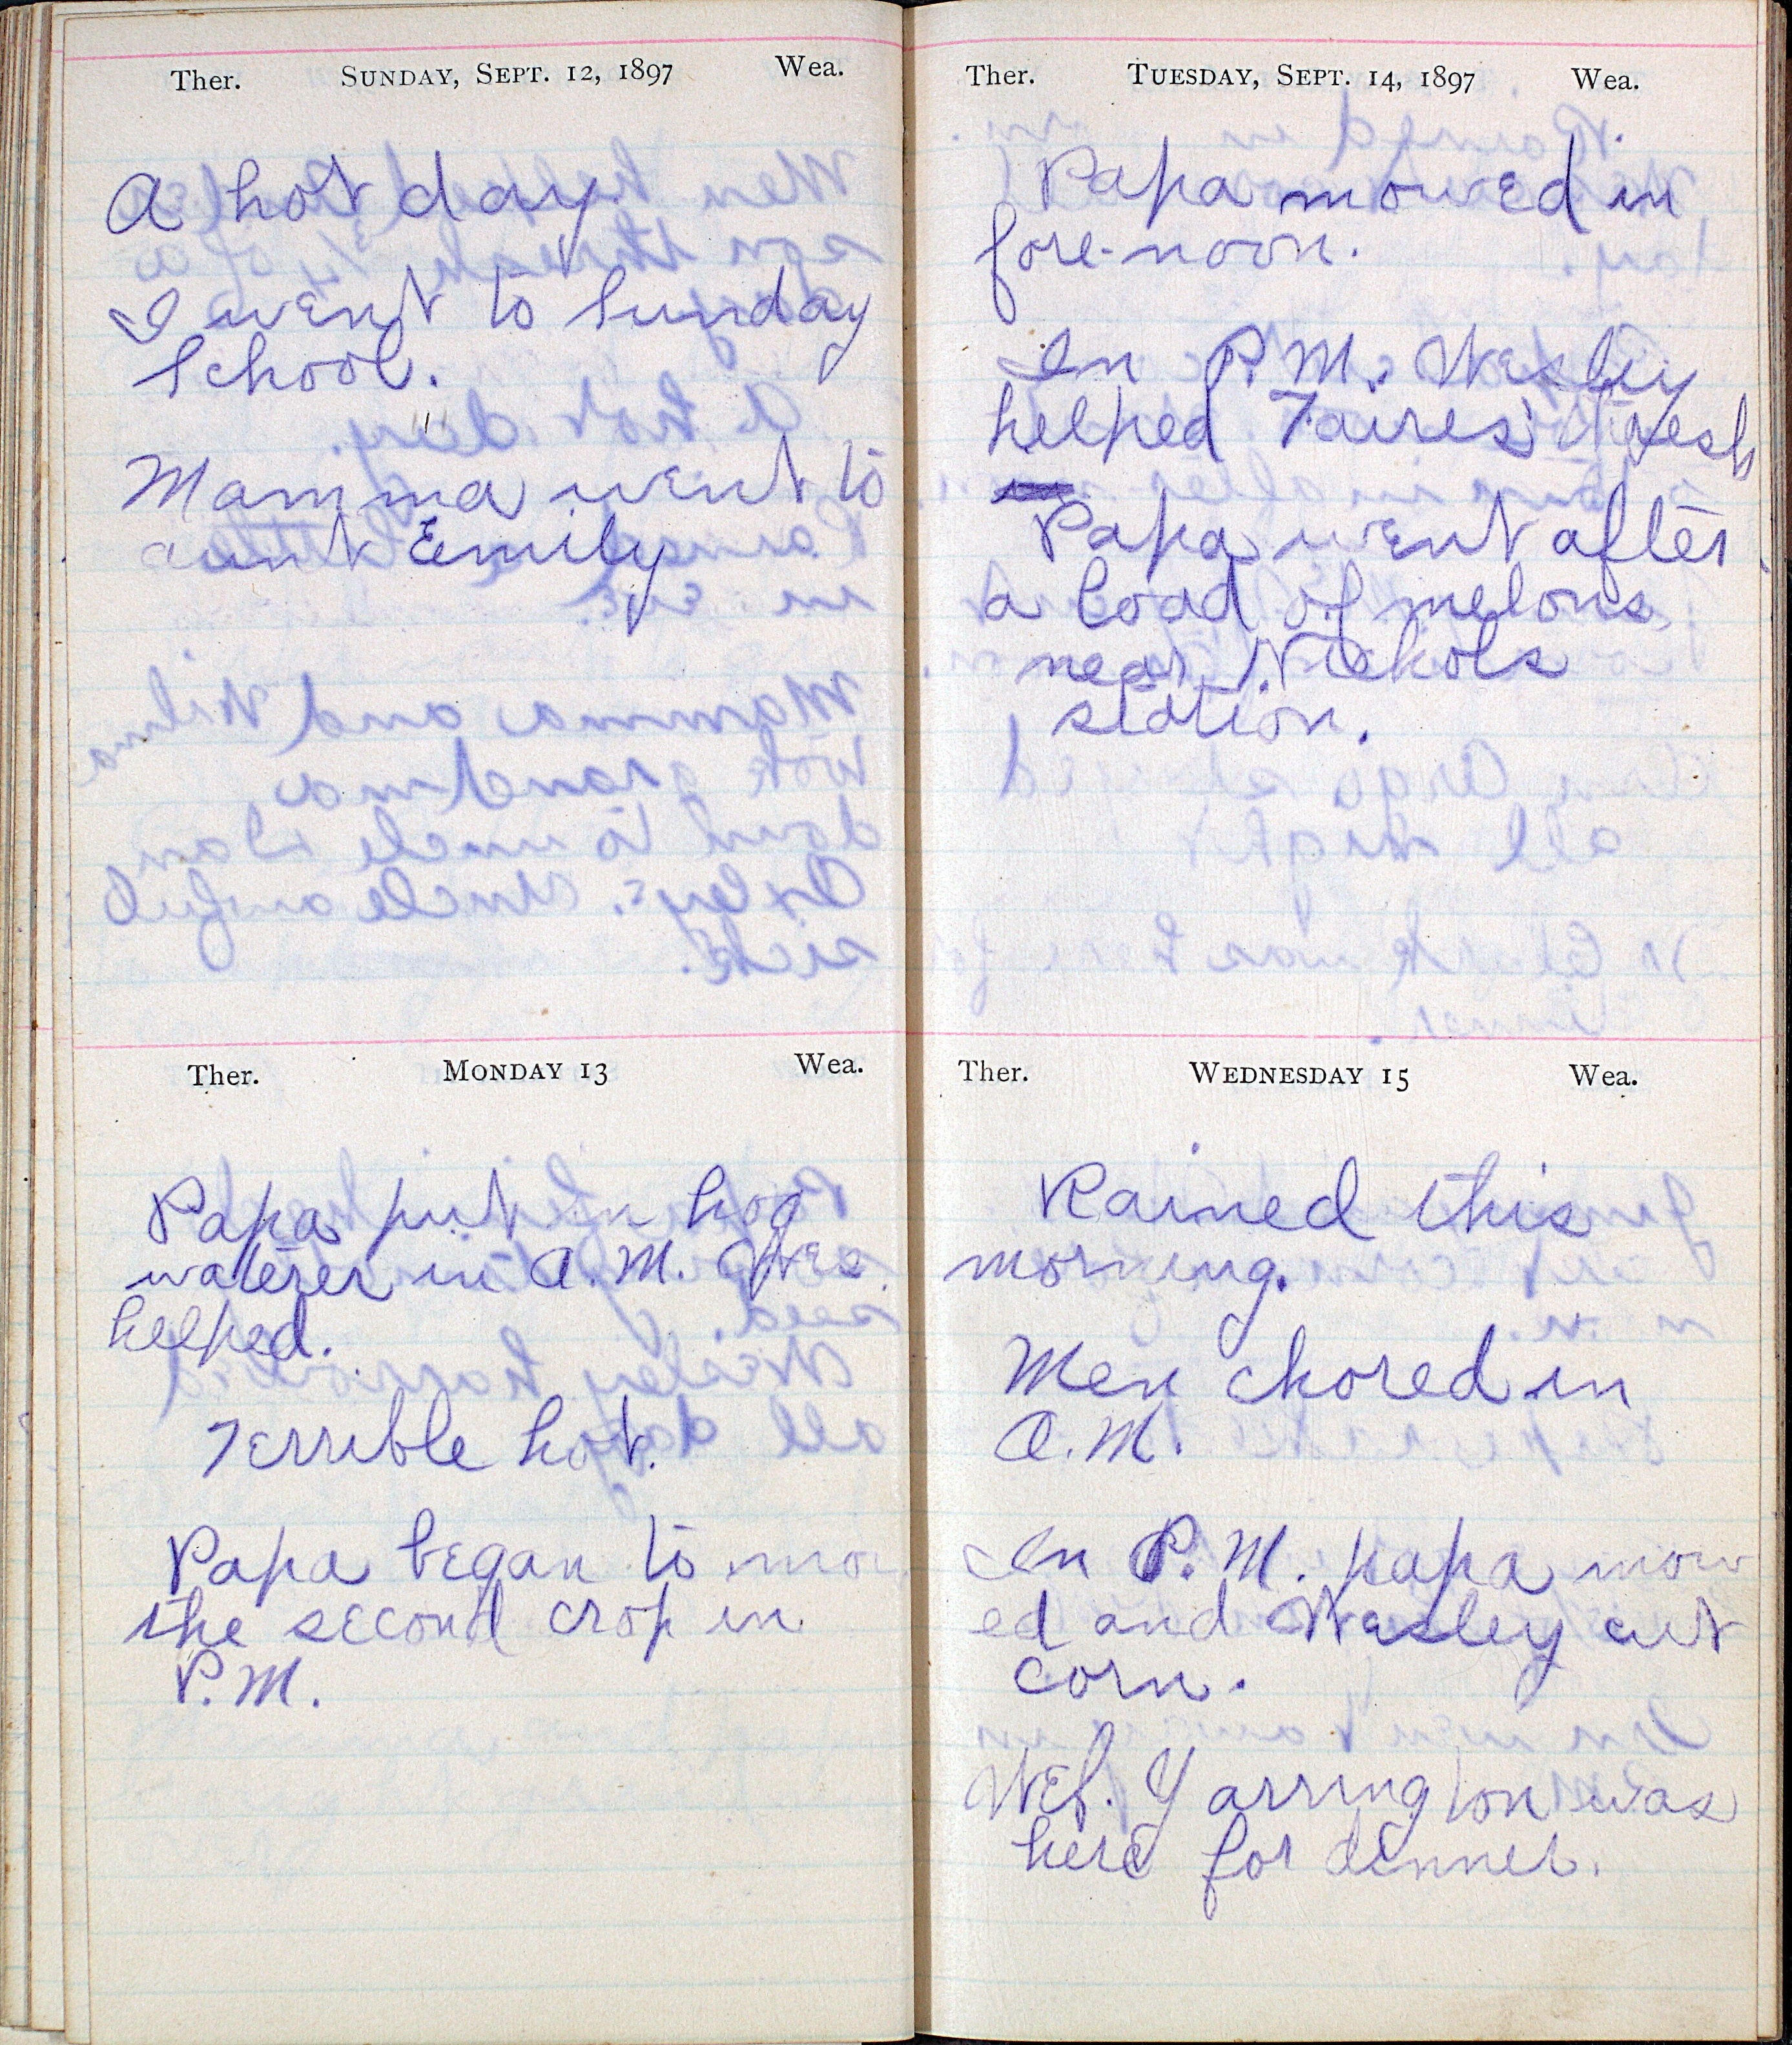 Ther. SUNDAY, SEPT. 12, 1897 Wea.
A hot day.
I went to Sunday
School.
Mamma went to
aunt Emily
Ther. MONDAY 13 Wea.
Papa put in hog
waterer in A.M. Wes.
helped.
Terrible hot.
Papa began to mow
the second crop in
P.M.
Ther. TUESDAY, SEPT. 14, 1897 Wea.
Papa mowed in
fore-noon.
In P.M. Wesley
helped Taires' thresh
Papa went after
a load of melons
near Nickols
station.
Ther. WEDNESDAY 15 Wea.
Rained this
morning.
Men chored in
A.M.
In P.M. papa mow
ed and Wesley cut
corn.
Wef. Yarrington was
here for dinner.